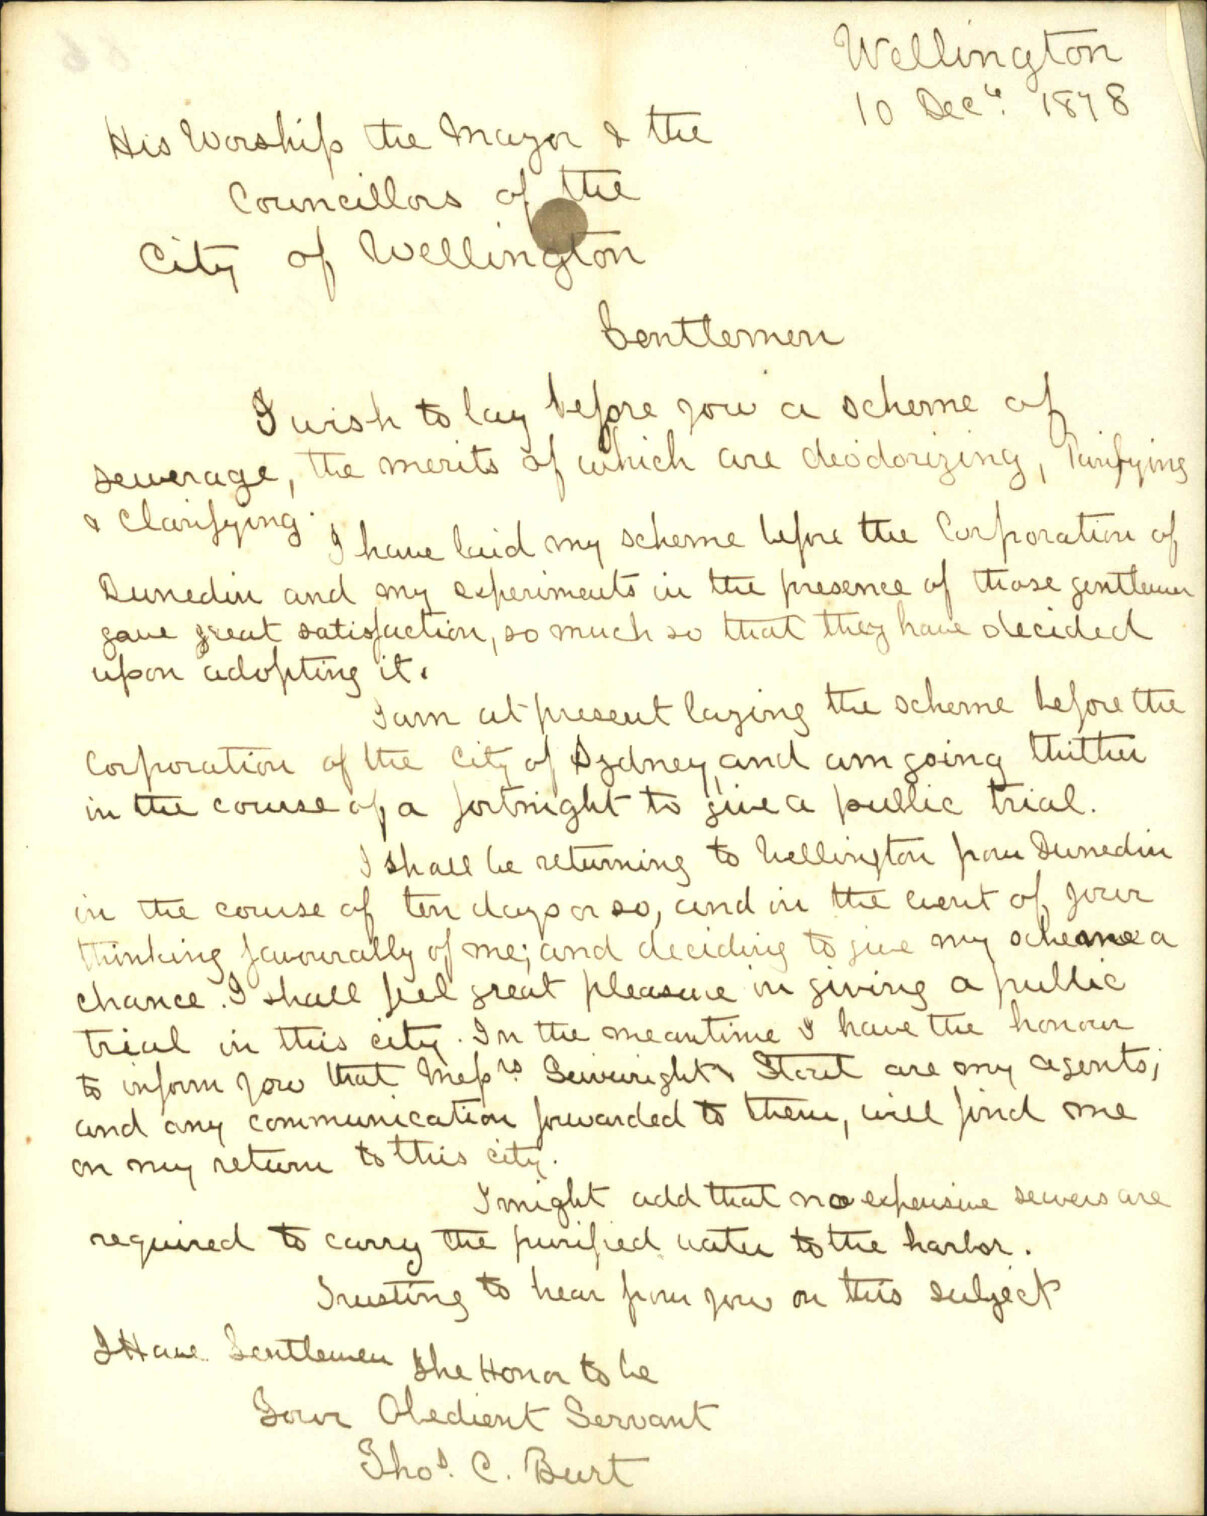 Wellington
10 Decr. 1878
His Worship the Mayor & the
Councillors of the
City of Wellington
Gentlemen
I wish to lay before you a scheme of
sewerage, the merits of which are deodorizing, Purifying
& Clarifying.
I have laid my scheme before the Corporation of
Dunedin and my experiments in the presence of those gentlemen
gave great satisfaction, so much so that they have decided
upon adopting it.
I am at present laying the scheme before the
Corporation of the City of Sydney, and am going thither
in the course of a fortnight to give a public trial.
I shall be returning to Wellington from Dunedin
in the course of ten days or so, and in the event of your
thinking favourally of me; and deciding to give my scheme a
chance. I shall feel great pleasure in giving a public
trial in this city. In the meantime I have the honour
to inform you that Messrs Sievwright & Stout are my agents;
and any communication forwarded to them, will find me
on my return to this city.
I might add that no expensive sewers are
required to carry the purified water to the harbor.
Trusting to hear from you on this subject
I Have Gentlemen The Honor to be
Your Obedient Servant
Thos. C. Burt